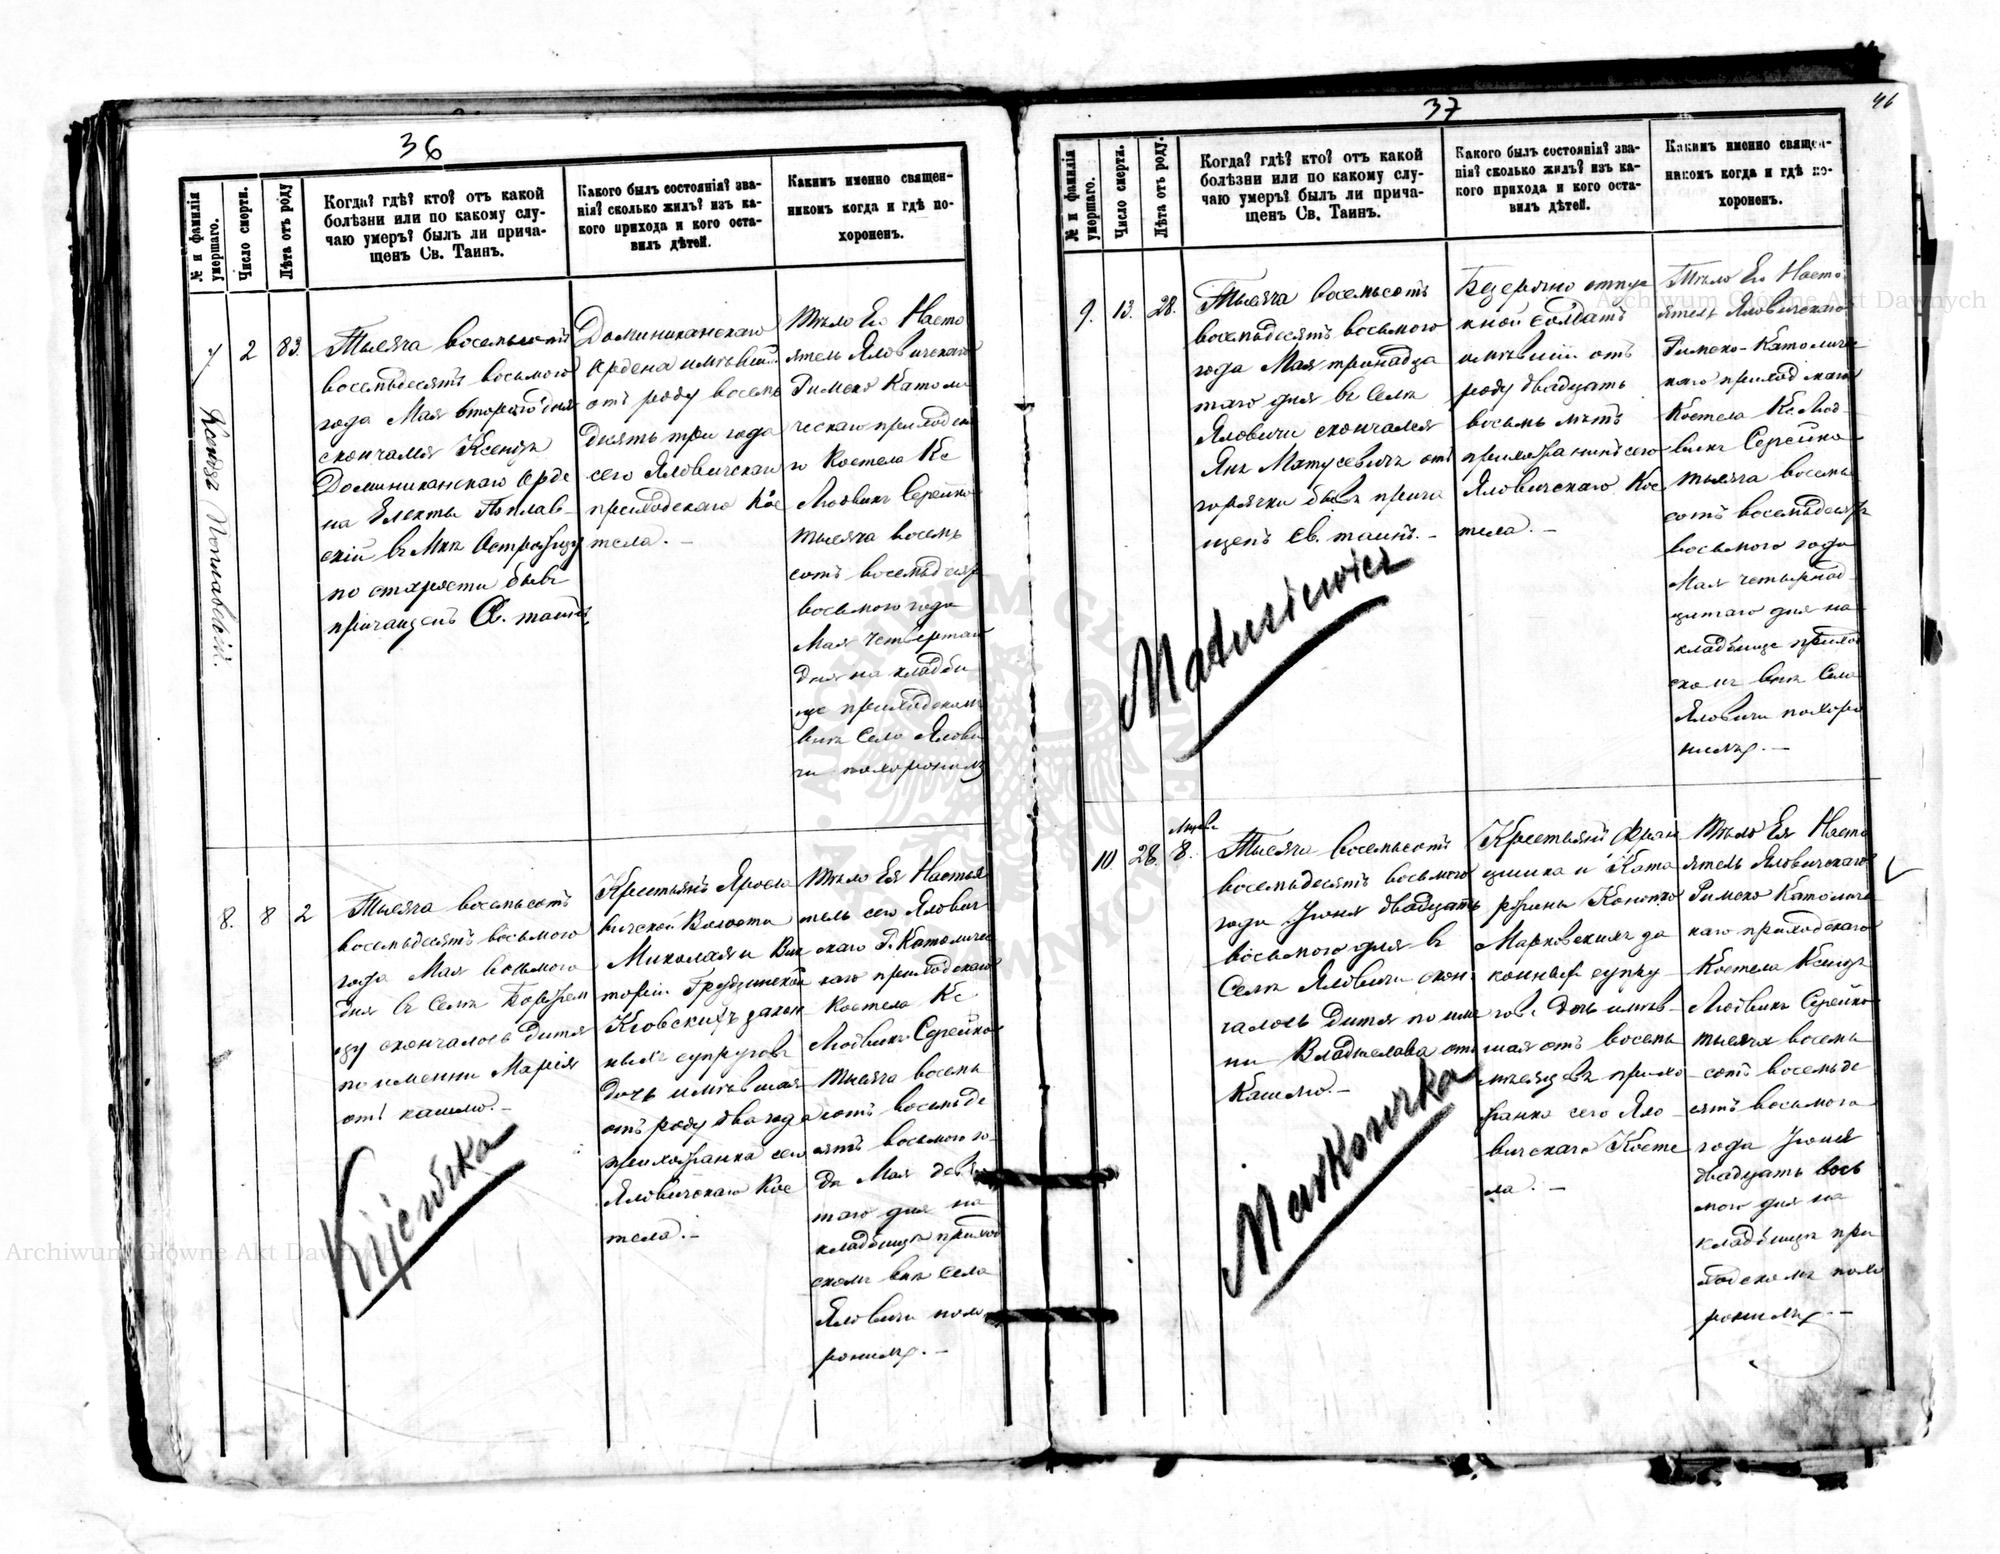 36
№ и фамилія умершаго.
Число смерти.
Лѣта отъ роду
Когда? гдѣ? кто? отъ какой
болѣзни или по какому слу-
чаю умеръ? былъ ли прича-
щенъ Св. Таинъ.
Какого былъ состоянія? зва-
нія? сколько жилъ? изъ ка-
кого прихода и кого оста-
вилъ дѣтей.
Какимъ именно священ-
никомъ когда и гдѣ по-
хороненъ.
7
Ксендзъ Поплавскій.
2
83.
Тысяча восемьсотъ
восемьдесятъ восьмого
года Мая второго дня
скончался Ксендзъ
Доминиканскаго Орде
на Поплав-
скій въ
по старости бывъ
причащенъ Св. таинъ
Доминиканскаго
Ордена имѣвшій
отъ роду восемь
десять три года
сего Яловичскаго
приходскаго Кос
тела. —
Тѣло Его Насто
ятель Яловичскаго
Римско Католи
ческаго приходска
го Костела Кс
Людвикъ Серейко
тысяча восемь
сотъ восемьдесятъ
восьмого года
Мая четвертаго
дня на кладби
ще приходскомъ
внѣ Села Ялови
чи похоронилъ
8.
8
2
Тысяча восемьсотъ
восемьдесятъ восьмого
года Мая восьмого
дня въ Селѣ
скончалось дитя
по имени Марія
отъ кашлю. —
Kijewska
Крестьянъ Яросла
вичской Волости
Николая и Вик
торіи Грудзинской
Кіовскихъ закон
ныхъ супруговъ
дочь имѣвшая
отъ роду два года
прихожанка сего
Яловичскаго Кос
тела. —
Тѣло Ея Настоя
тель сегоЯлович
скаго Р. Католичес
каго приходскаго
Костела Кс
Людвикъ Серейко
тысяча восемь
сотъ восемьде
сятъ восьмого го-
да Мая девя
таго дня на
кладбищѣ приход
скомъ внѣ села
Яловичи похо
ронилъ. —
37
46
№ и фамилія умершаго.
Число смерти.
Лѣта отъ роду.
Когда? гдѣ? кто? отъ какой
болѣзни или по какому слу-
чаю умеръ? былъ ли прича-
щенъ Св. Таинъ.
Какого былъ состоянія? зва-
нія? сколько жилъ? изъ ка-
кого прихода и кого оста-
вилъ дѣтей.
Какимъ именно священ-
никомъ когда и гдѣ по-
хороненъ.
9.
13.
28.
Тысяча восемьсотъ
восемьдесятъ восьмого
года Мая тринадца
таго дня въ Селѣ
Яловичи скончался
Янъ Матусевичъ отъ
горячки бывъ прича
щенъ Св. таинъ. —
Matusiewicz
Безсрочно отпус
кной Солдатъ
имѣвшій отъ
роду двадцать
восемь лѣтъ
прихожанинъ сего
Яловичскаго Кос
тела. —
Тѣло Его Насто
ятель Яловичскаго
Римско-Католичес
каго приходскаго
Костела Кс Люд-
викъ Серейко
тысяча восемь
сотъ восемьдесятъ
восьмого года
Мая четырнад
цатаго дня на
кладбище приход
скомъ внѣ Села
Яловичи похоро
нилъ. —
10
28.
Мѣсяцъ
8.
Тысяча восемьсотъ
восемьдесятъ восьмого
года Іюня двадцать
восьмого дня въ
Селѣ Яловичи скон
чалось дитя по име
ни Владислава отъ
Кашлю. —
Markowska
Крестьянъ Фран
цишка и Ката
ржины
Марковскихъ за
конныхъ супру
говъ дочь имѣв-
шая отъ восемь
мѣсяцевъ прихо
жанка сего Яло
вичскаго Косте
ла. —
Тѣло Ея Насто
ятель Яловичскаго
Римско Католичес
каго приходскаго
Костела Ксендзъ
Людвикъ Серейко
тысяча восемь
сотъ восемьде
сятъ восьмого
года Іюня
двадцать вось
мого дня на
кладбищѣ при
ходскомъ похо
ронилъ. —
Archiwum Główne Akt Dawnych
Archiwum Główne Akt Dawnych
ARCHIWUM GŁÓWNE AKT DAWNYCH